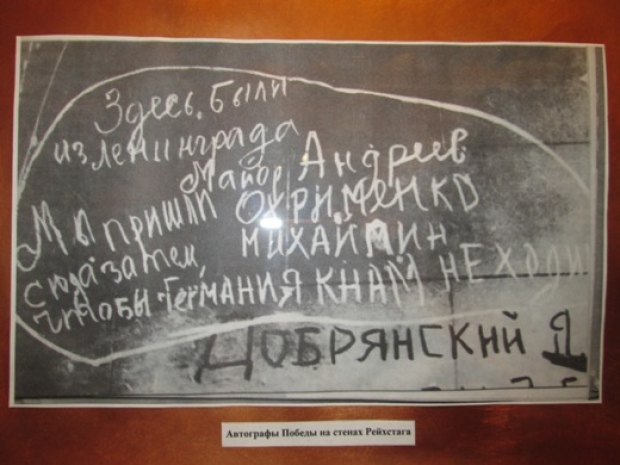 Здесь были
из Ленинграда
Майор Андреев
Мы пришли ОХРИМЕНКО
сюда затем, МИХАЙМИН
чтобы Германия К НАМ НЕ ХОДИ
ДОБРЯНСКИЙ Д
Автографы Победы на стенах Рейхстага